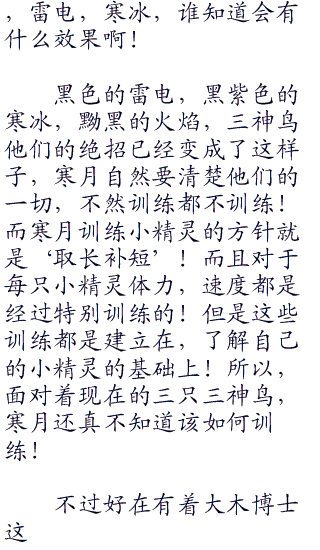 ，雷电，寒冰，谁知道会有
什么效果啊！
黑色的雷电，黑紫色的
寒冰，黝黑的火焰，三神鸟
他们的绝招已经变成了这样
子，寒月自然要清楚他们的
一切，不然训练都不训练！
而寒月训练小精灵的方针就
是‘取长补短’！而且对于
每只小精灵体力，速度都是
经过特别训练的！但是这些
训练都是建立在，了解自己
的小精灵的基础上！所以，
面对着现在的三只三神鸟，
寒月还真不知道该如何训
练！
不过好在有着大木博士
这